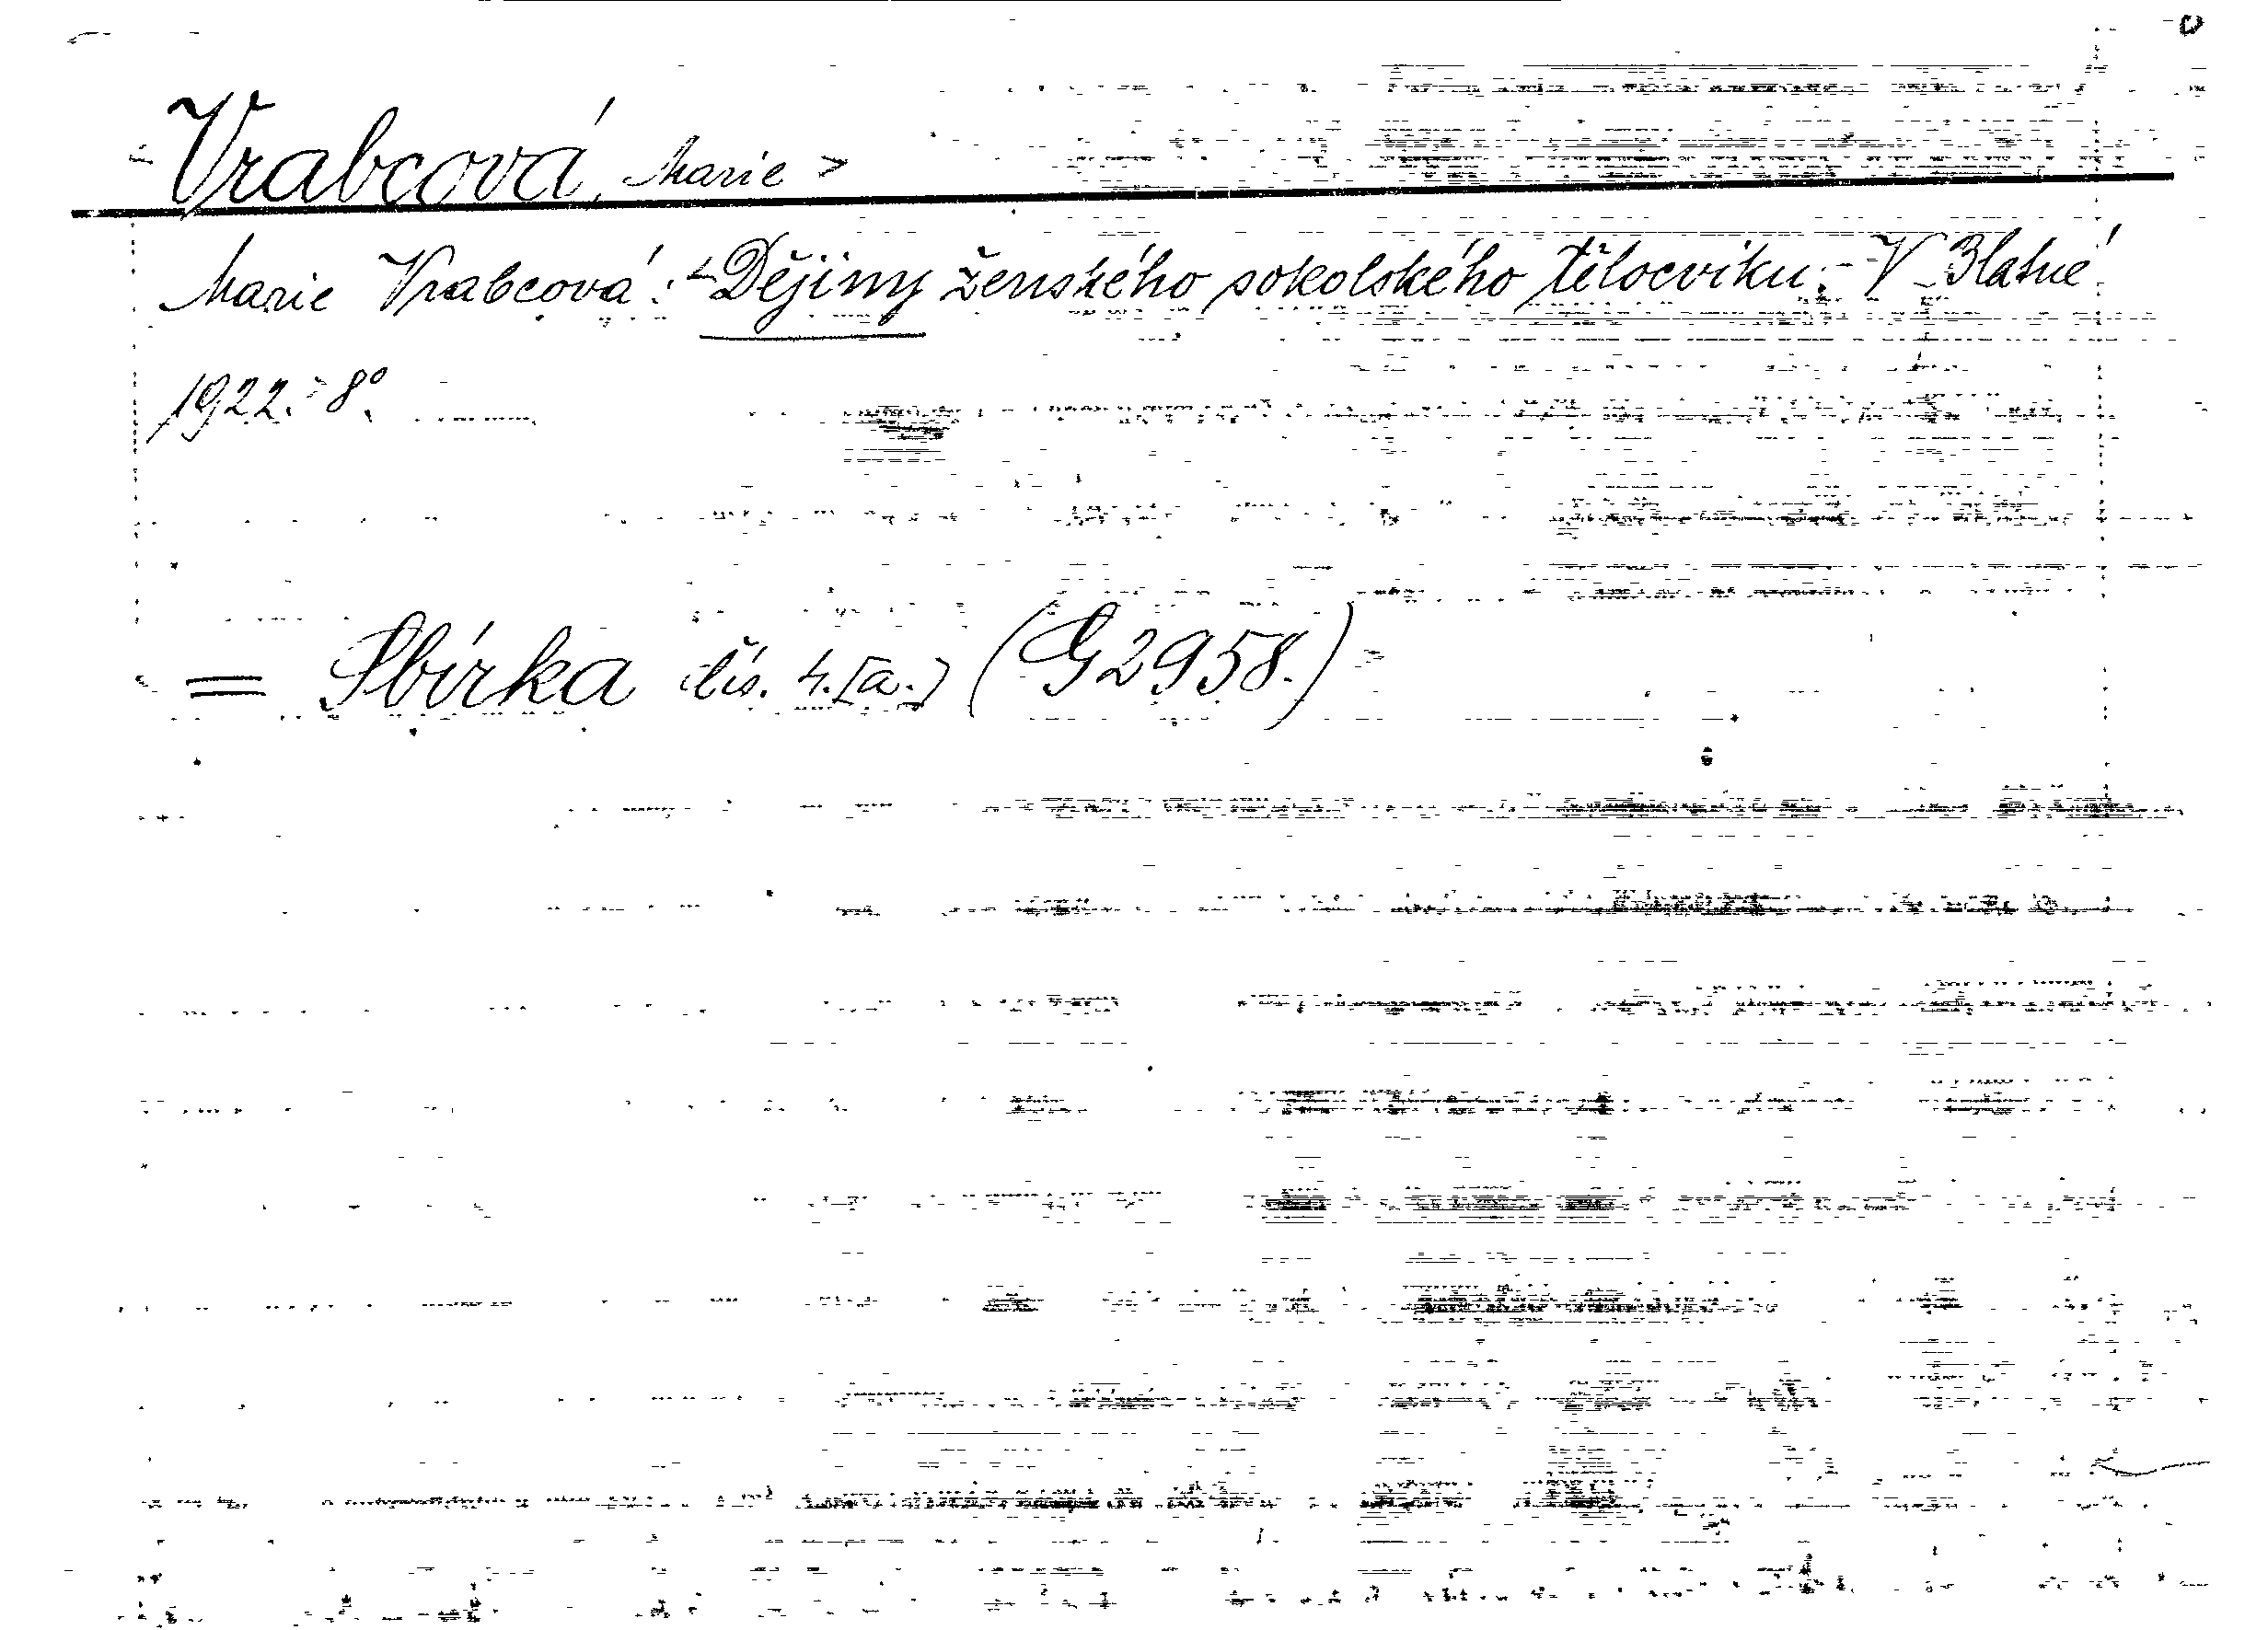 Vrabcová, Marie
Marie Vrabcová: Dějiny ženského sokolského tělocviku. - V Blatné
1922. - 8°.
= Sbírka čís. 4. [a.] (G 2958.)